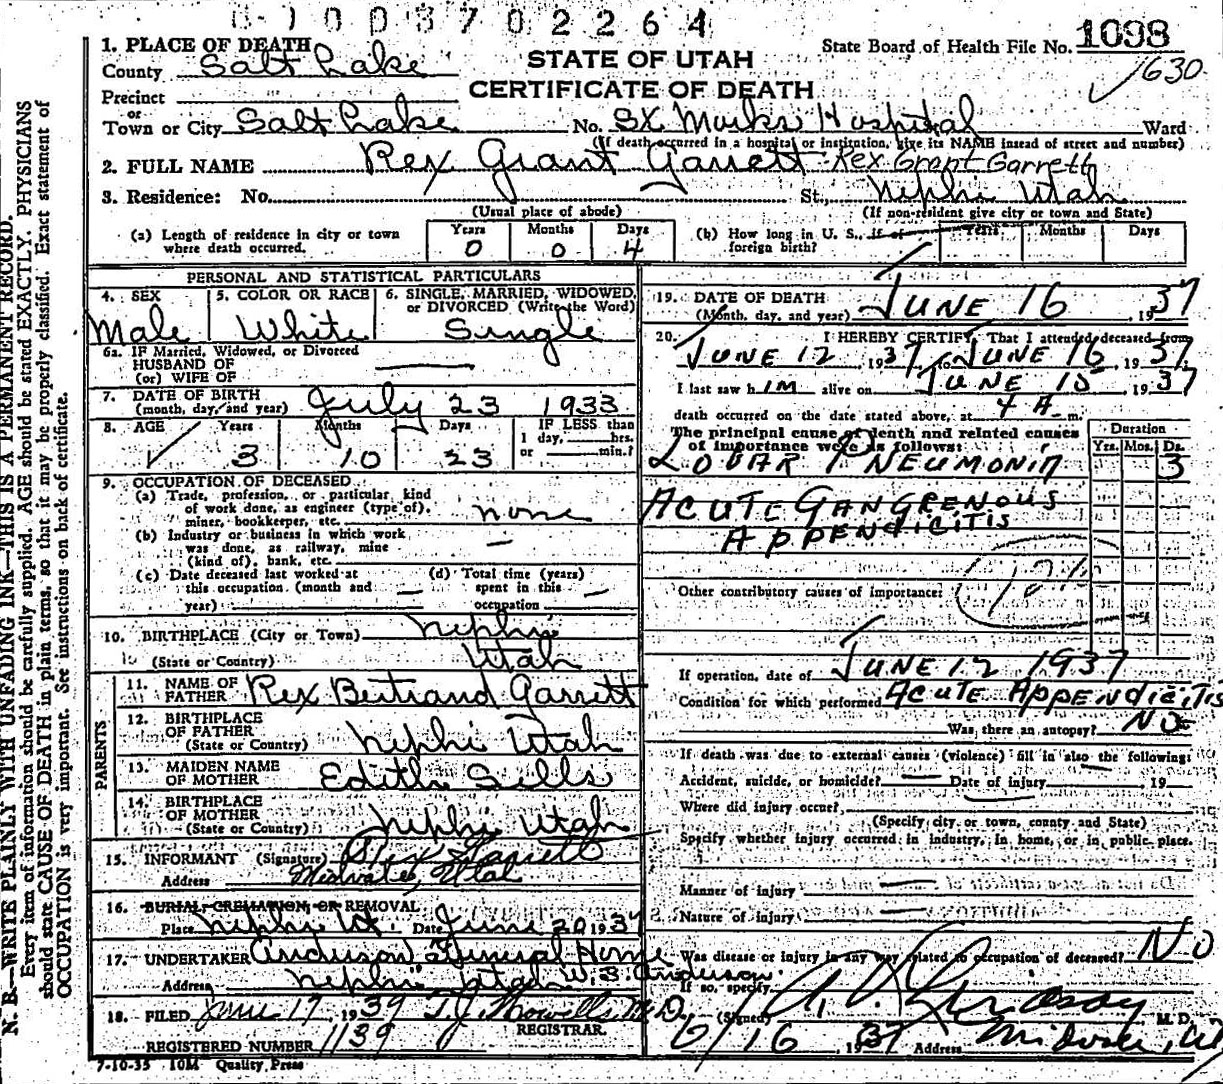 0-1003702264
1. PLACE OF DEATH
County Salt Lake
STATE OF UTAH
CERTIFICATE OF DEATH
State Board of Health File No. 1098
1630
Precinct
or
Town or City Salt Lake No. St Marks Hospital Ward
(If death occurred in a hospital or institution, give its NAME instead of street and number)
2. FULL NAME Rex Grant Garrett Rex Grant Garrett
3. Residence: No. St., Nephi Utah
(Usual place of abode) (If non-resident give city or town and State)
(a) Length of residence in city or town where death occurred. Years 0 Months 0 Days 4
(b) How long in U. S., if of foreign birth? Years Months Days
PERSONAL AND STATISTICAL PARTICULARS
4. SEX Male
5. COLOR OR RACE White
6. SINGLE, MARRIED, WIDOWED, or DIVORCED (Write the Word) Single
6a. IF Married, Widowed, or Divorced
HUSBAND OF
(or) WIFE OF
7. DATE OF BIRTH
(month, day, and year) July 23 1933
8. AGE Years 3 Months 10 Days 23
IF LESS than
1 day, hrs.
or min.?
9. OCCUPATION OF DECEASED
(a) Trade, profession, or particular kind
of work done, as engineer (type of),
miner, bookkeeper, etc. none
(b) Industry or business in which work
was done, as railway, mine
(kind of), bank, etc.
(c) Date deceased last worked at
this occupation. (month and
year)
(d) Total time (years)
spent in this
occupation
10. BIRTHPLACE (City or Town) Nephi
(State or Country) Utah
PARENTS
11. NAME OF
FATHER Rex Bertrand Garrett
12. BIRTHPLACE
OF FATHER
(State or Country) Nephi Utah
13. MAIDEN NAME
OF MOTHER Edith Sells
14. BIRTHPLACE
OF MOTHER
(State or Country) Nephi Utah
15. INFORMANT (Signature) Rex Garrett
Address Midvale, Utah
16. BURIAL CREMATION OR REMOVAL
Place Nephi Ut. Date June 20 1937
17. UNDERTAKER Anderson Funeral Home
Address Nephi Utah W. S. Anderson.
18. FILED June 17 1937 T. J. Howells M.D.
REGISTRAR.
REGISTERED NUMBER 1139
7-10-35 10M Quality Press
19. DATE OF DEATH
(Month, day, and year) JUNE 16 1937
20. I HEREBY CERTIFY, That I attended deceased from
JUNE 12, 1937, to JUNE 16, 1937.
I last saw him alive on JUNE 15, 1937
death occurred on the date stated above, at 4 A. m.
The principal cause of death and related causes
of importance were as follows:
Duration
Yrs. Mos. Ds.
LOBAR PNEUMONIA 3
ACUTE GANGRENOUS
APPENDICITIS
Other contributory causes of importance:
If operation, date of JUNE 12 1937
Condition for which performed ACUTE APPENDICITIS
Was there an autopsy? No
If death was due to external causes (violence) fill in also the following:
Accident, suicide, or homicide? Date of injury , 19
Where did injury occur?
(Specify city or town, county and State)
Specify whether injury occurred in industry, in home, or in public place.
Manner of injury
Nature of injury
Was disease or injury in any way related to occupation of deceased? No
If so, specify
(Signed) M. D.
6/16 1937 Address Midvale, Ut
N. B.—WRITE PLAINLY WITH UNFADING INK—THIS IS A PERMANENT RECORD.
Every item of information should be carefully supplied. AGE should be stated EXACTLY. PHYSICIANS
should state CAUSE OF DEATH in plain terms, so that it may be properly classified. Exact statement of
OCCUPATION is very important. See instructions on back of certificate.